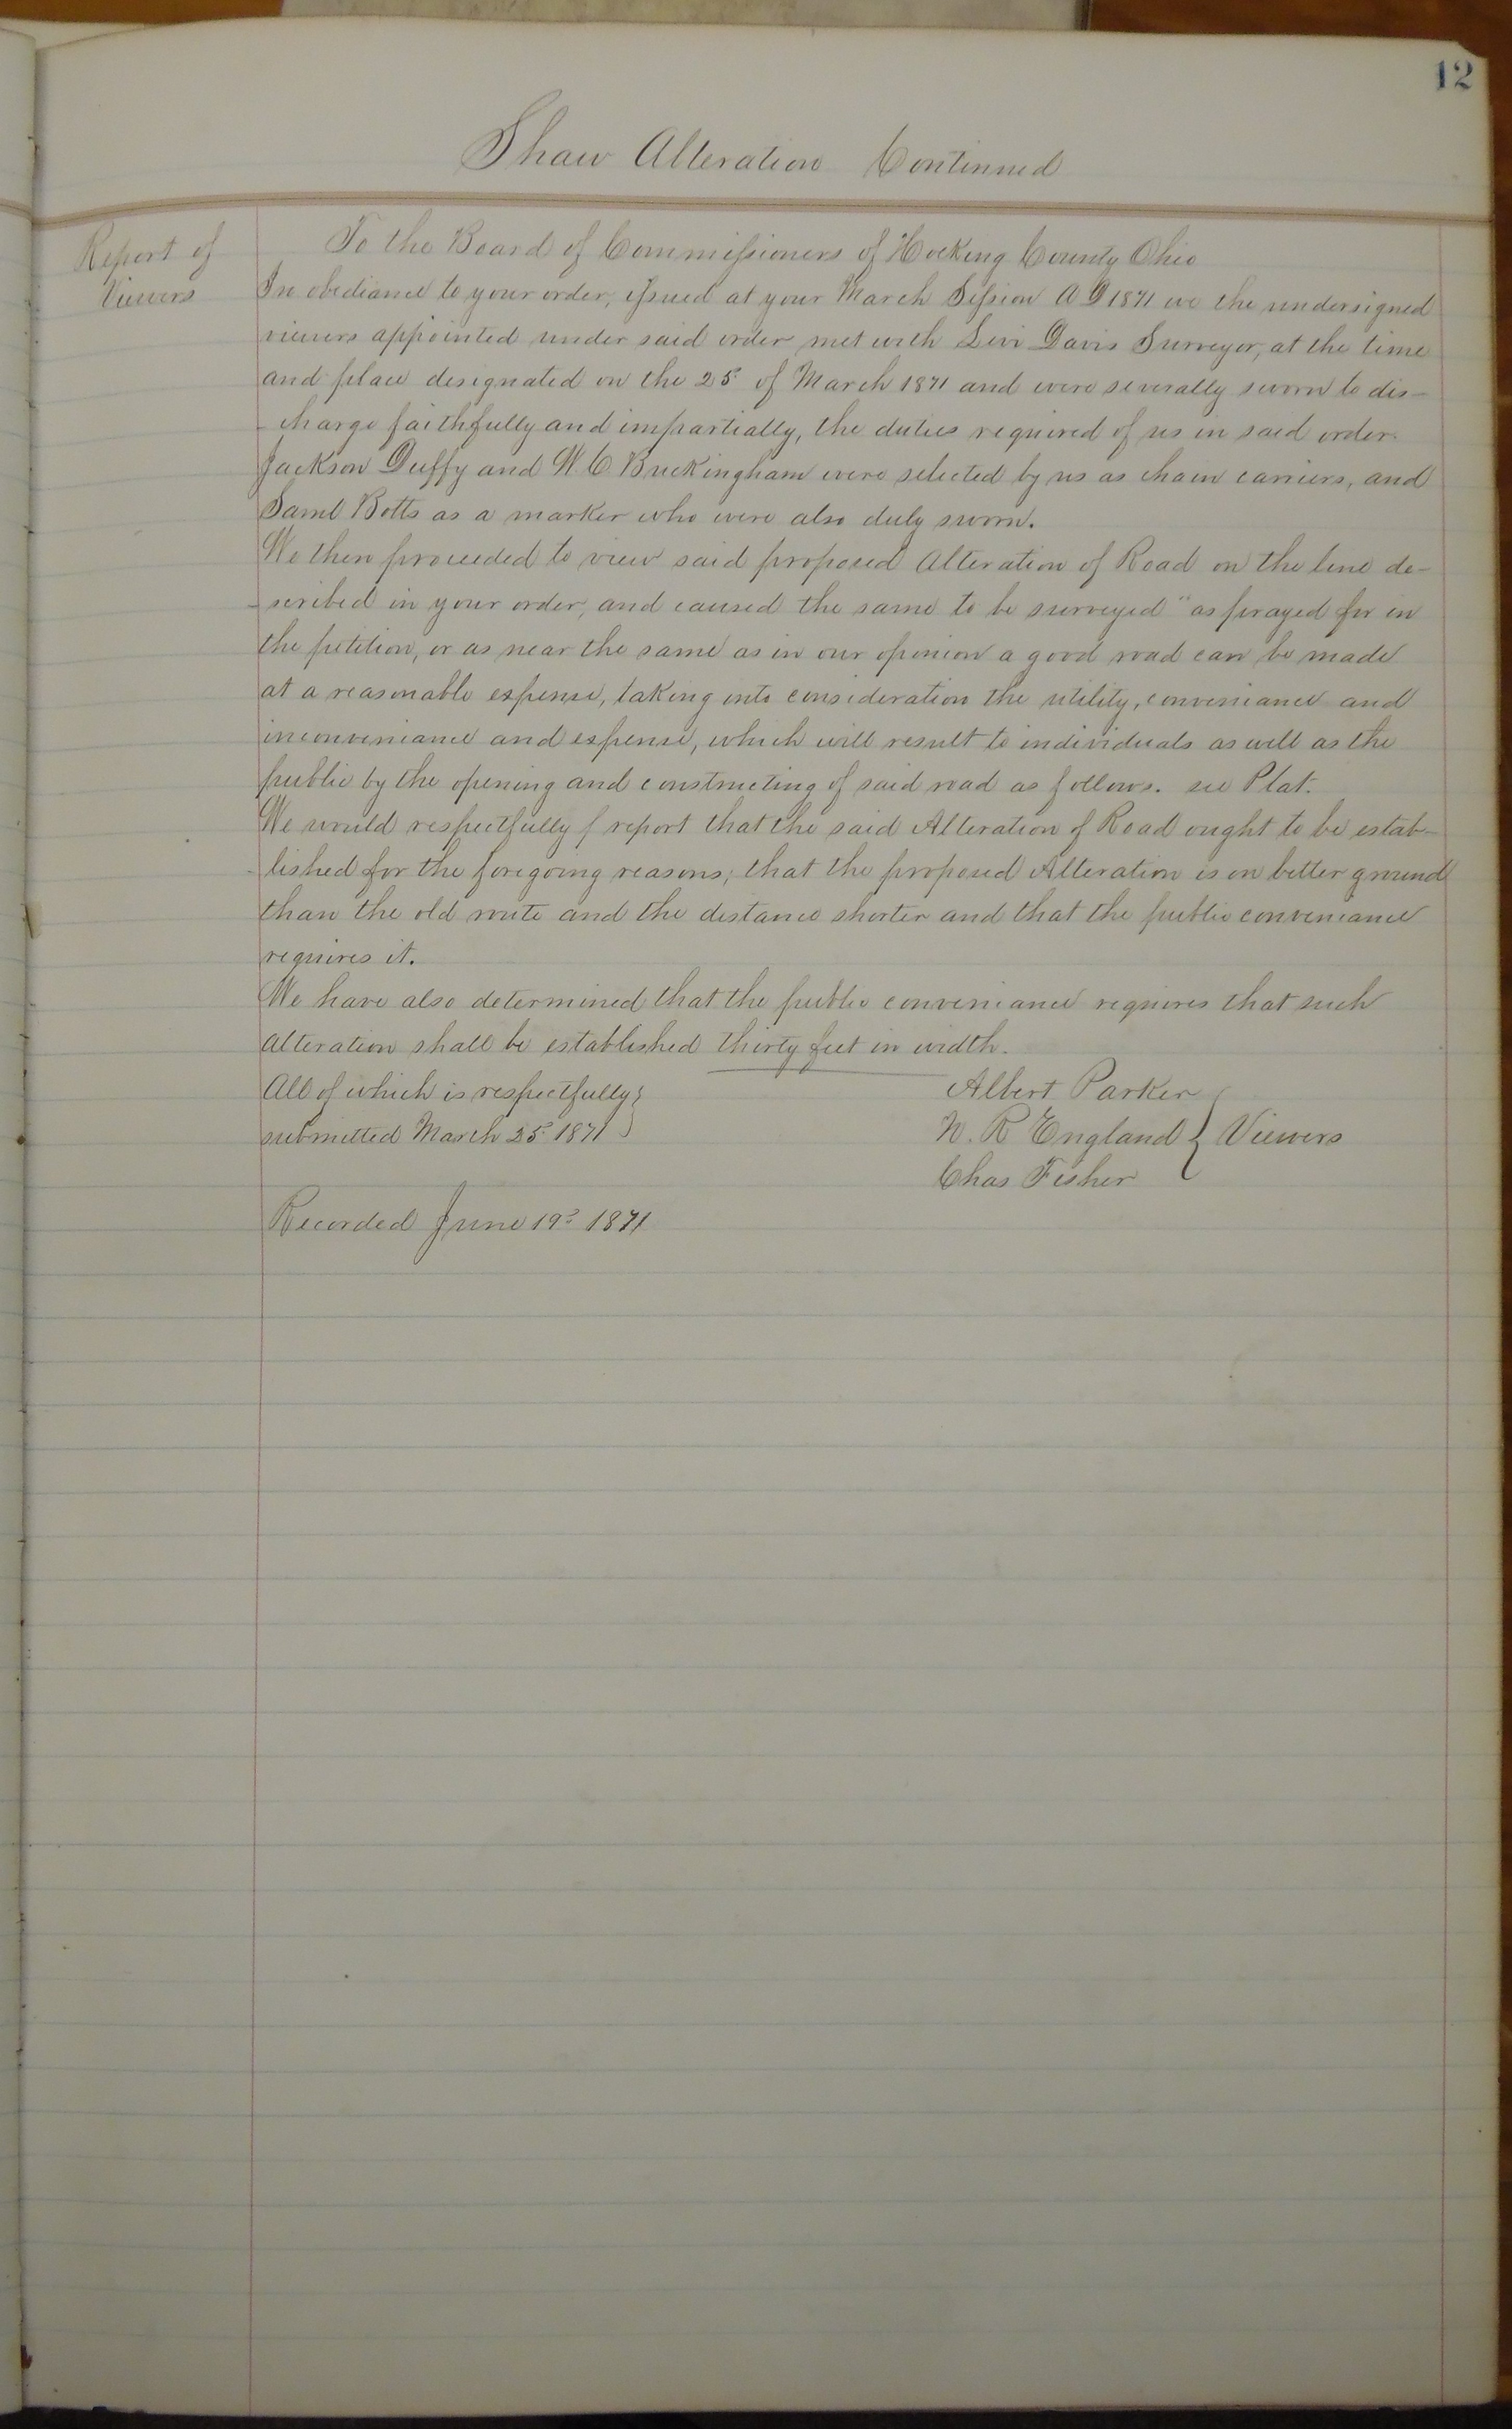 12
Shaw Alteration Continued
Report of
Viewers
To the Board of Commissioners of Hocking County Ohio
In obediance to your order, issued at your March Session A D 1871 we the undersigned
viewers appointed under said order met with Levi Davis Surveyor, at the time
and place designated on the 25th of March 1871 and were severally sworn to dis-
-charge faithfully and impartially, the duties required of us in said order.
Jackson Duffy and W C Buckingham were selected by us as chain carriers, and
Saml Botts as a marker who were also duly sworn.
We then proceeded to view said proposed Alteration of Road on the line de-
-scribed in your order, and caused the same to be surveyed "as prayed for in
the petition, or as near the same as in our opinion a good road can be made
at a reasonable expense, taking into consideration the utility, conveniance and
inconveniance and expense, which will result to individuals as well as the
public by the opening and constructing of said road as follows. see Plat.
We would respectfully report that the said Alteration of Road ought to be estab-
-lished for the foregoing reasons; that the proposed Alteration is on better ground
than the old route and the distance shorter and that the public conveniance
requires it.
We have also determined that the public conveniance requires that such
alteration shall be established thirty feet in width.
All of which is respectfully
submitted March 25th 1871
Albert Parker
N. R England } Viewers
Chas Fisher
Recorded June 19th 1871